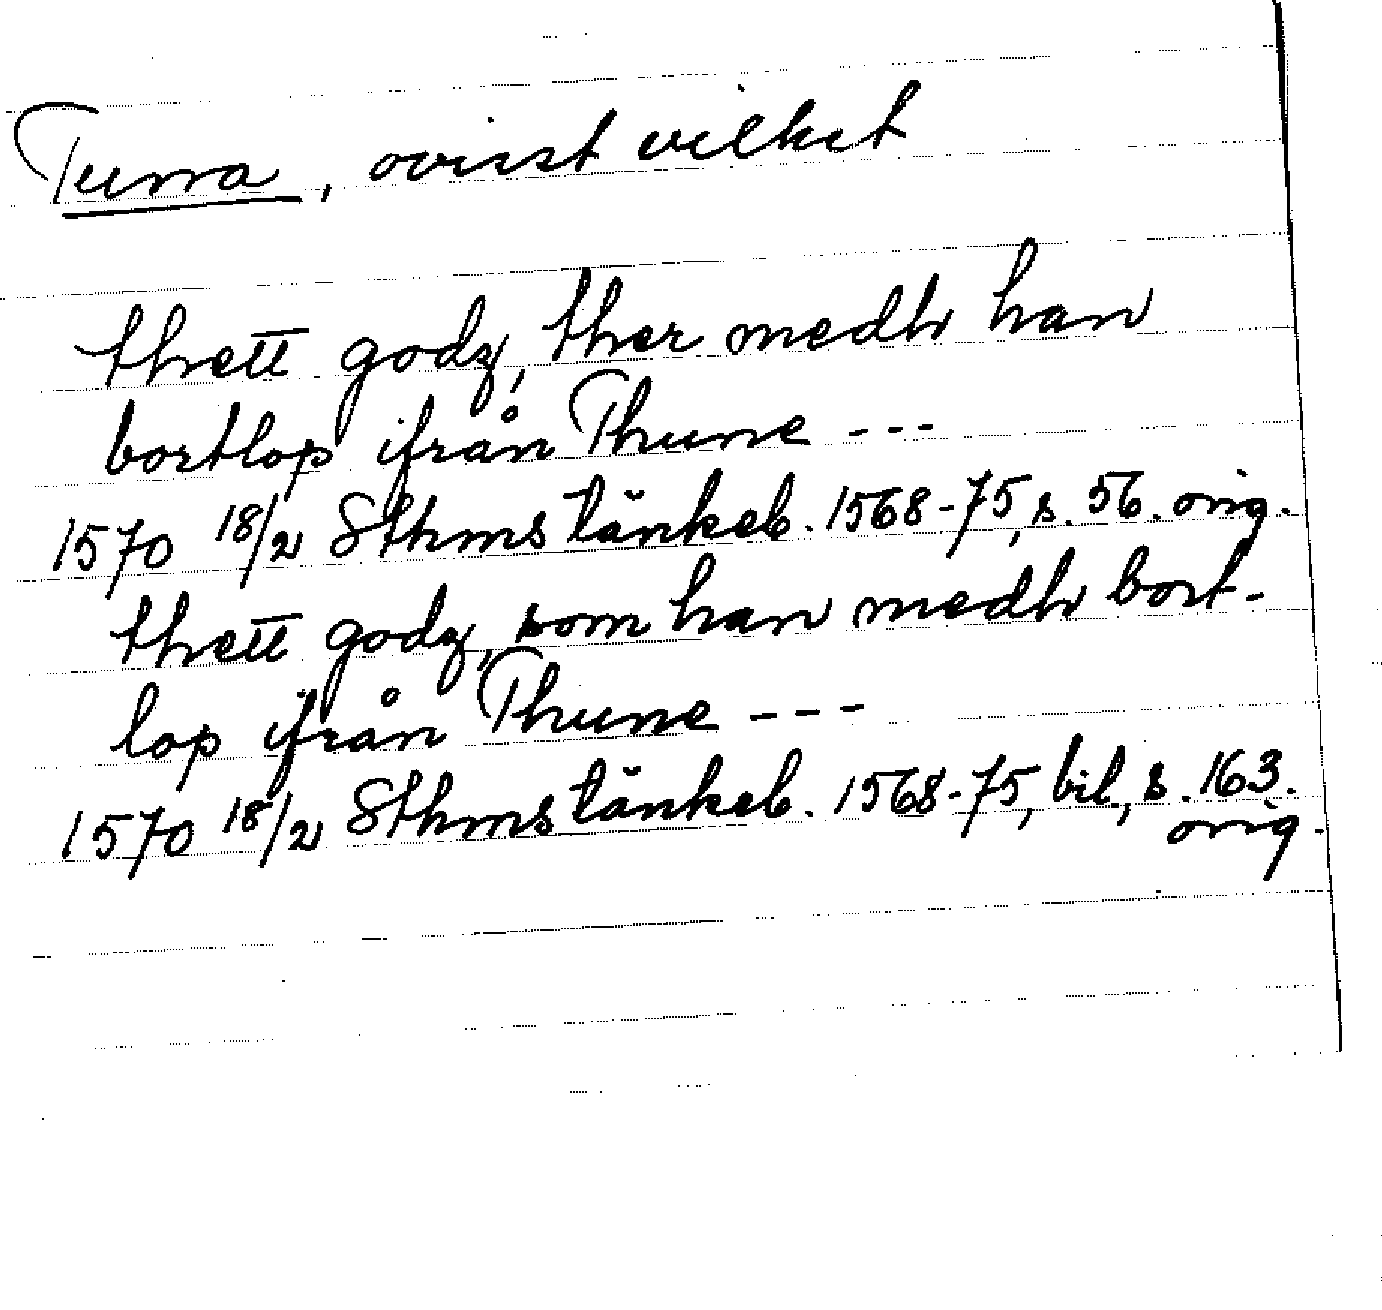 Tuna, ovisst vilket
thett godz, ther medh han
bortlop ifrån Thune ---
1570 18/2 Sthms tänkeb. 1568-75, s. 56. orig.
thett godz, som han medh bort-
lop ifrån Thune ---
1570 18/2 Sthms tänkeb. 1568-75, bil, s. 163.
orig.